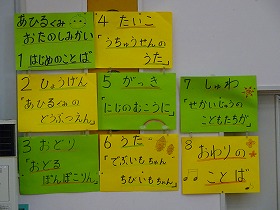 あひるぐみ・・・
おたのしみかい
1 はじめのことば
2 ひょうげん
「あひるぐみの
どうぶつえん」
3 おどり
「おどる
ぽんぽこりん」
4 たいこ
「うちゅうせんの
うた」
5 がっき
「にじのむこうに」
6 うた
「でぶいもちゃん
ちびいもちゃん」
7 しゅわ
「せかいじゅうの
こどもたちが」
8 おわりの
ことば